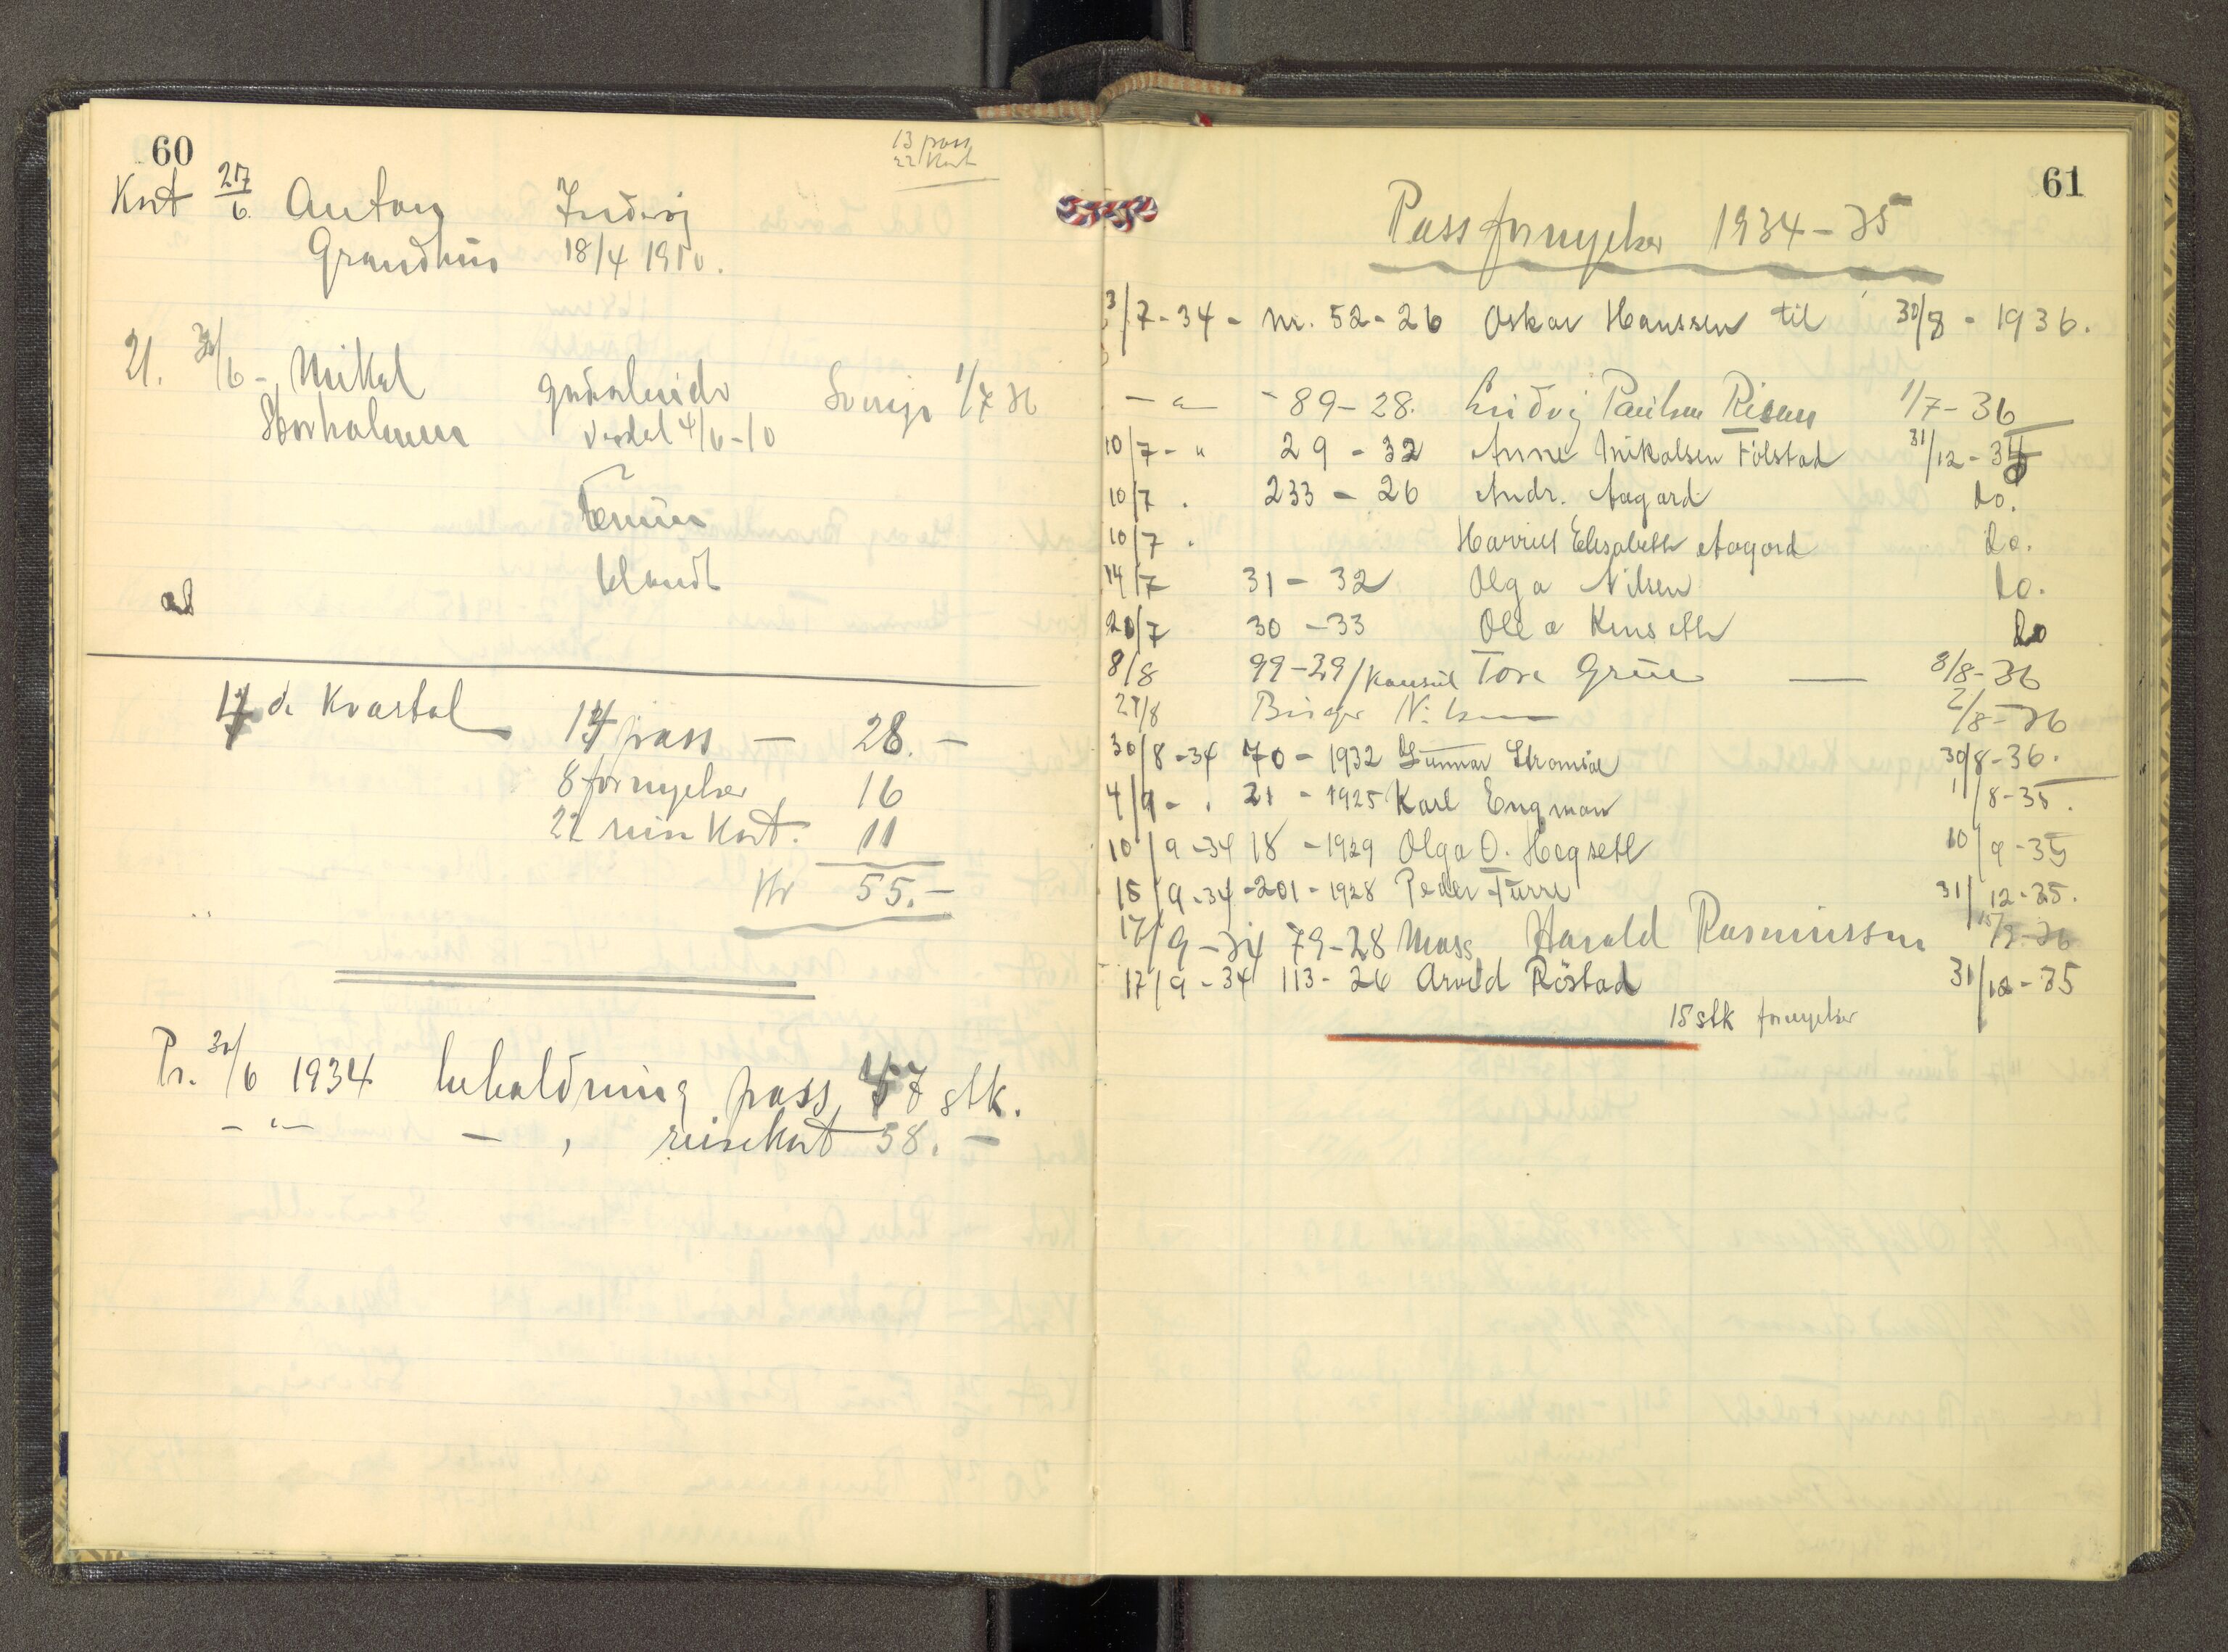 60
13 pass
22 Kort
Kort 27/6 Anton Ludvig
Grandhus 18/4 1910.
21. 30/6 - Mikal
Storholmen
Verdal 4/6-10
Sverige 1/7 36
blandt
17 de Kvartal
14 pass — 28.—
8 fornyelser 16
22 reisekort. 11
Kr 55.—
Pr. 30/6 1934 beholdning pass 47 stk.
— " — — , reisekort 58. —
61
Passfornyelser 1934-35
3/7-34 - nr. 52-26 Oskar Hanssen til 30/8 - 1936.
— " — - 89-28. Ludvig Paulsen Risan 1/7-36
10/7 - " 29 - 32 Anne Mikalsen Fölstad 31/12-35
10/7 . 233 - 26 Andr. Aagard do.
10/7 . Harriet Elisabeth Aagard do.
14/7 31 - 32 Olga Nilsen do.
20/7 30 - 33 Olea Kunseth do
8/8 99-29/Konsul Tore Grüe — 8/8-36
27/8 Birger Nilsen 2/8-36
30/8-34 70 - 1932 Gunnar Stromsöe 30/8-36.
4/9 - . 21 - 1925 Karl Engman 1/8-35.
10/9-34 18 - 1929 Olga O. Hegseth 10/9-35
15/9-34 - 201 - 1928 Peder Furre 31/12-35.
17/9-34 79-28 Mass Harald Rasmussen 15/9-36
17/9-34 113-26 Arvid Röstad 31/12-35
15 stk fornyelser